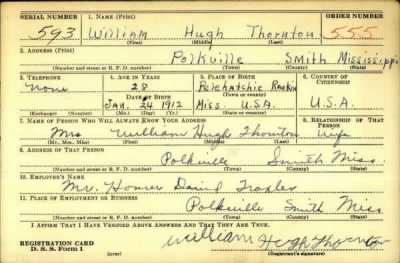 SERIAL NUMBER 1. NAME (Print) ORDER NUMBER
593 William Hugh Thornton 555
(First) (Middle) (Last)
2. ADDRESS (Print)
Polkville Smith Mississippi
(Number and street or R. F. D. number) (Town) (County) (State)
3. TELEPHONE 4. AGE IN YEARS 5. PLACE OF BIRTH 6. COUNTRY OF CITIZENSHIP
None 28 Pelchatchie Rankin
DATE OF BIRTH (Town or county)
Jan. 24 1912 Miss. U.S.A. U.S.A.
(Exchange) (No.) (Mo.) (Day) (Yr.) (State or country)
7. NAME OF PERSON WHO WILL ALWAYS KNOW YOUR ADDRESS 8. RELATIONSHIP OF THAT PERSON
Mrs William Hugh Thornton wife
(Mr., Mrs., Miss) (First) (Middle) (Last)
9. ADDRESS OF THAT PERSON
Polkville Smith Miss.
(Number and street or R. F. D. number) (Town) (County) (State)
10. EMPLOYER'S NAME
Mr. Homer David
11. PLACE OF EMPLOYMENT OR BUSINESS
Polkville Smith Miss
(Number and street or R. F. D. number) (Town) (County) (State)
I AFFIRM THAT I HAVE VERIFIED ABOVE ANSWERS AND THAT THEY ARE TRUE.
REGISTRATION CARD
D. S. S. Form 1 William Hugh Thornton
(Registrant's signature)